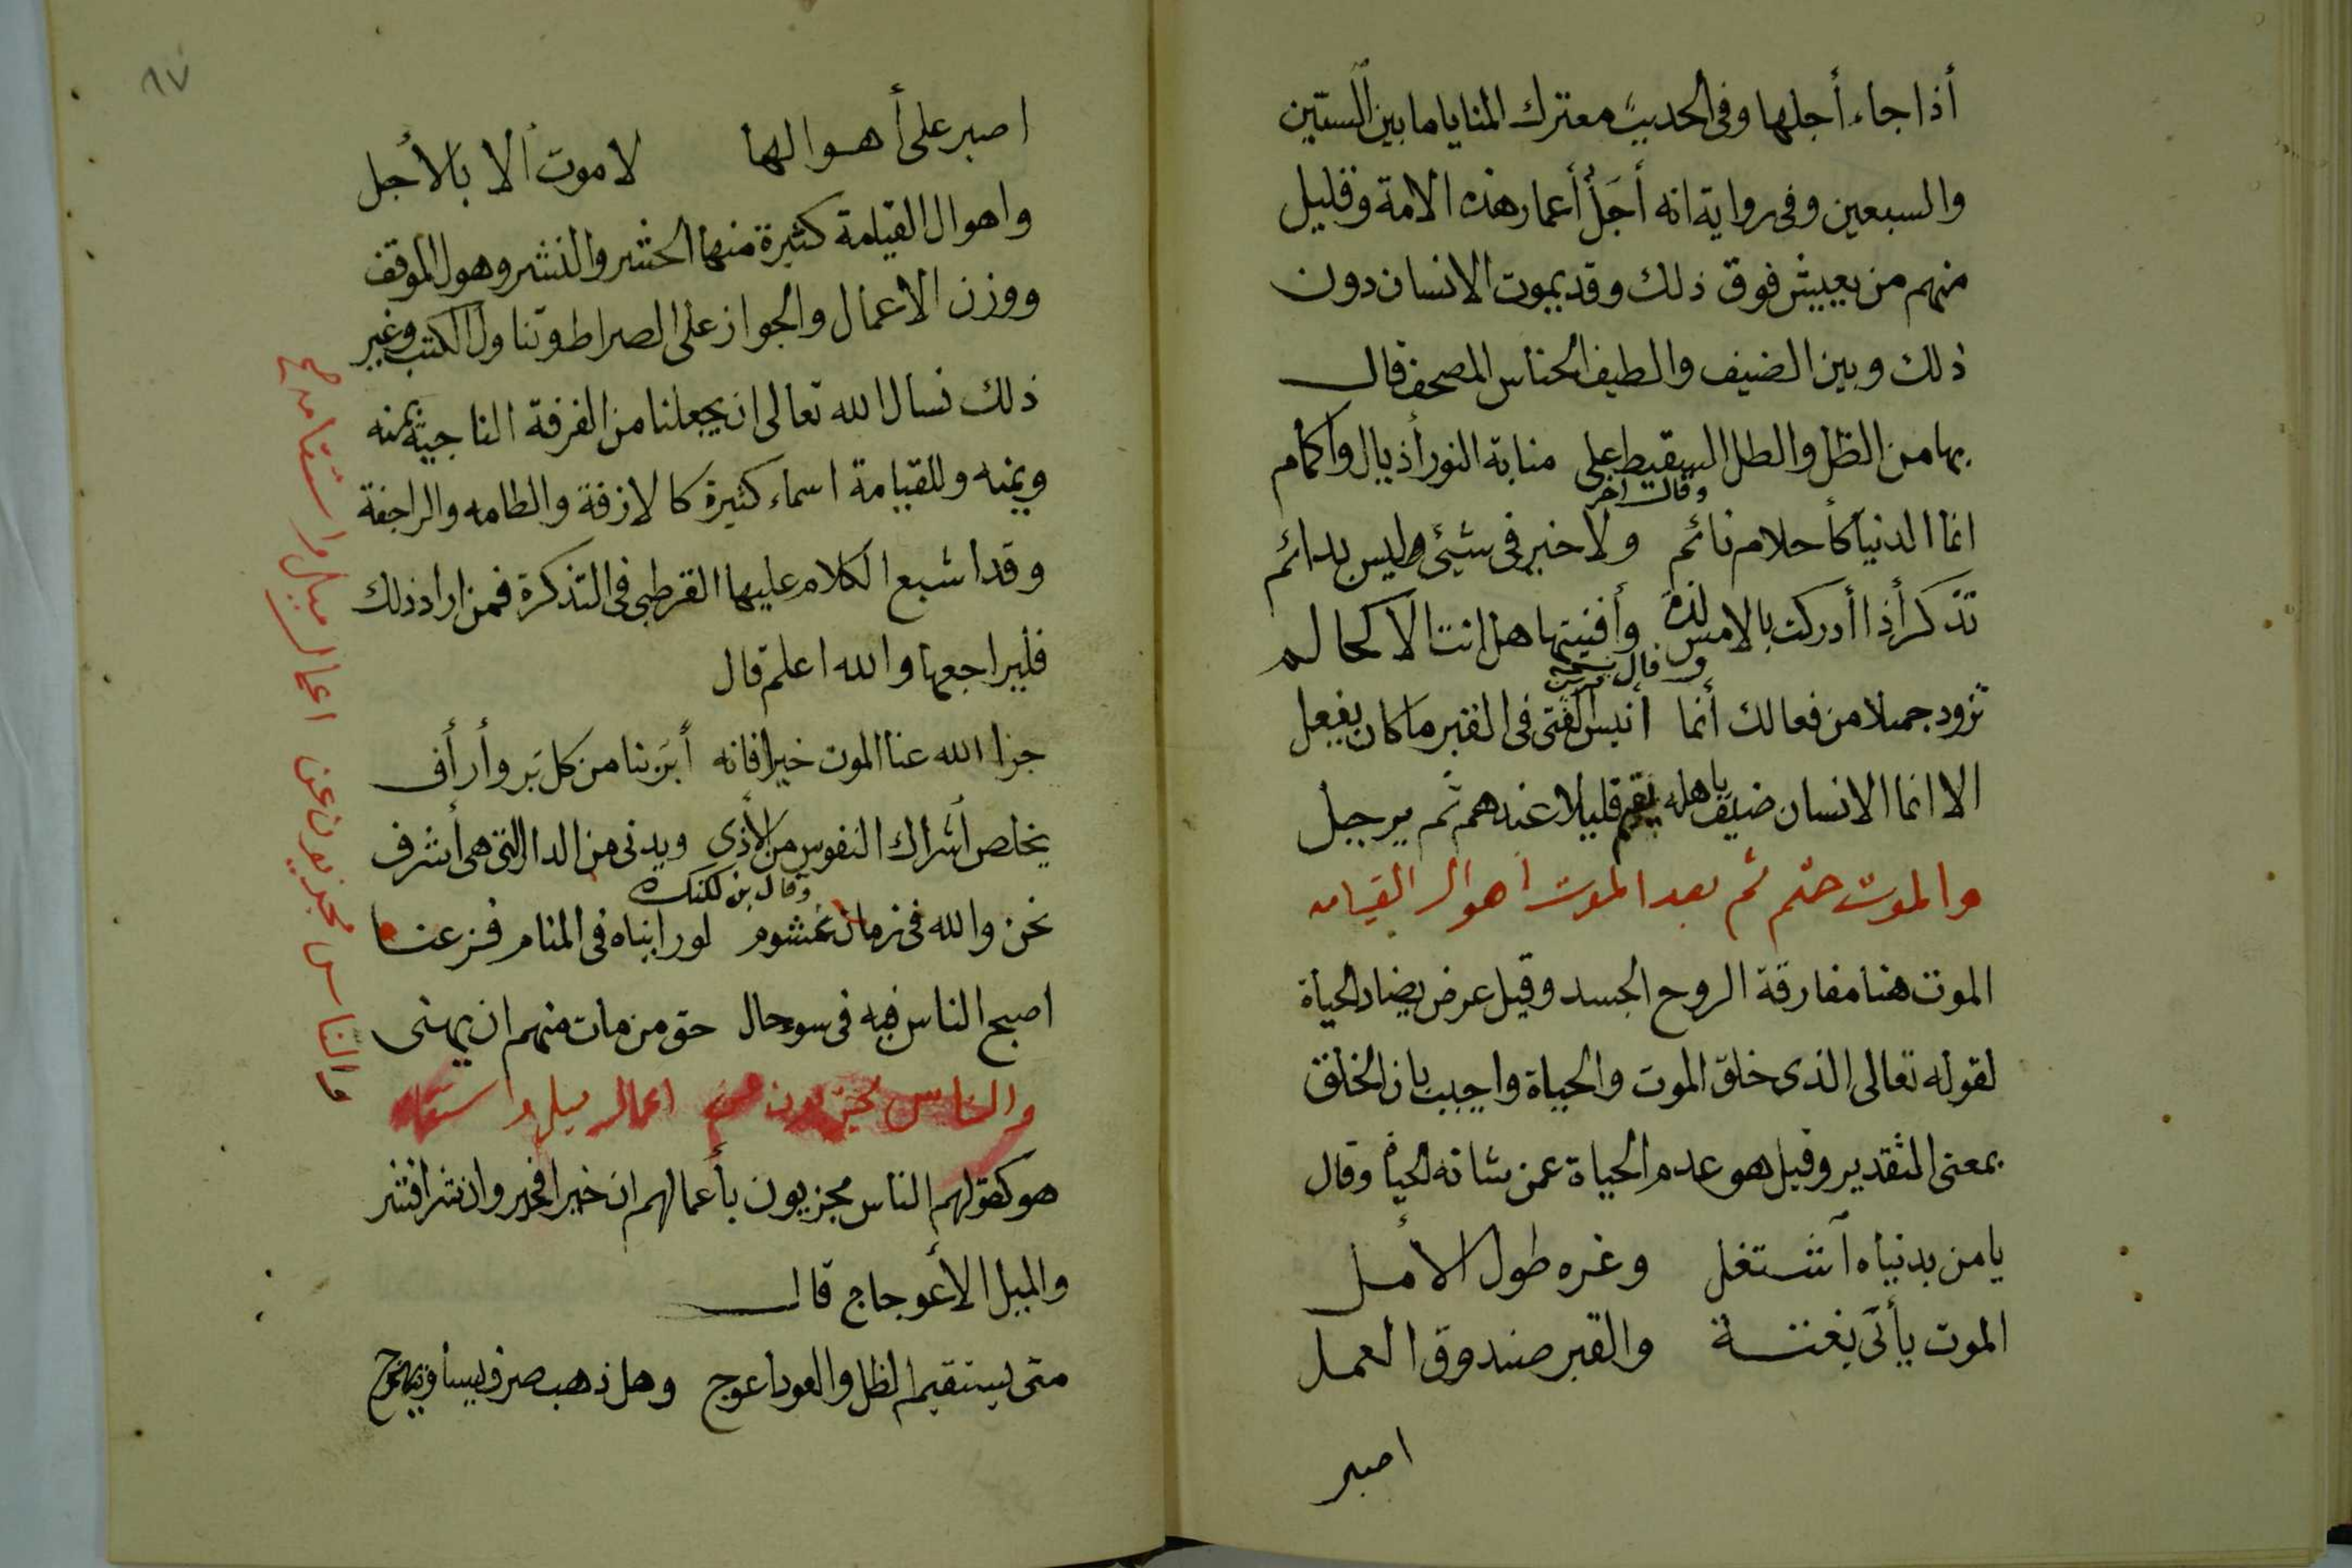 أذا جاء أجلها وفى الحديث معترك المنايا ما بين الستين
والسبعين وفى رواية انه أجل أعمار هذه الامة وقليل
منهم من يعيش فوق ذلك وقد يموت الانسان دون
ذلك وبين الضيف والطيف الجناس المصحف قال
بها من الظل والطل السقيط على منابة النور أذيال واكمام
وقال اخر
انما الدنيا كأحلام نائم ولا خير فى شيئ وليس بدائم
تذكر أذا أدركت بالامس لذة وأفنيتها هل انت الا كحالم
وقال
تزود جميلا من فعالك أنما أنيس الفتى فى القبر ما كان يفعل
الا انما الانسان ضيف باهله يقيم قليلا عندهم ثم يرحل
والموت حتم ثم بعد الموت اهوال القيامه
الموت هنا مفارقة الروح الجسد وقيل عرض يضاد الحياة
لقوله تعالى الذى خلق الموت والحياة واجيب بان الخلق
بمعنى التقدير وقيل هو عدم الحياة عمن شانه الحياة وقال
يا من بدنياه آشتغل وغره طول الأمل
الموت يأتى بغتة والقبر صندوق العمل
اصبر
٨٧
اصبر على أهوالها لا موت ألا بالأجل
واهوال القيامة كثيرة منها الحشر والنشر وهول الموقف
ووزن الاعمال والجواز على الصراط وتناول الكتب وغير
ذلك نسال الله تعالى ان يجعلنا من الفرقة الناجية بمنه
ويمنه وللقيامة اسماء كثيرة كالازفة والطامه والراجفة
وقد اشبع الكلام عليها القرطبى فى التذكرة فمن اراد ذلك
فليراجعها والله اعلم قال
جزا الله عنا الموت خيرا فانه أبر بنا من كل بر وأرأف
يخلص أشراك النفوس من الأذى ويدنى من الدار التى هى أشرف
وقال بن لكنك
نحن والله فى زمان غشوم لو رايناه فى المنام فزعنا
اصبح الناس فيه فى سوحال حق من مات منهم ان يهنى
والناس مجزيون عن اعمال ميل واستقامه
هو كقولهم الناس مجزيون بأعمالهم ان خيرا فخير وان شرا فشر
والميل الأعوجاج قال
متى يستقيم الظل والعود اعوج وهل ذهب صرف
والناس مجزيون عن اعمال ميل واستقامه صح